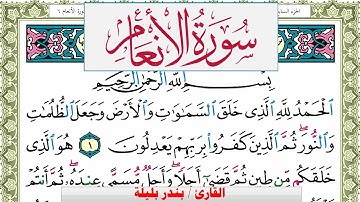 الجزء السابع
سورة الأنعام ٦
سُورَةُ الأَنْعَامِ
بِسْمِ اللَّهِ الرَّحْمَٰنِ الرَّحِيمِ
الْحَمْدُ لِلَّهِ الَّذِي خَلَقَ السَّمَاوَاتِ وَالْأَرْضَ وَجَعَلَ الظُّلُمَاتِ
وَالنُّورَ ثُمَّ الَّذِينَ كَفَرُوا بِرَبِّهِمْ يَعْدِلُونَ ١ هُوَ الَّذِي
خَلَقَكُم مِّن طِينٍ ثُمَّ قَضَىٰ أَجَلًا وَأَجَلٌ مُّسَمًّى عِندَهُ ثُمَّ أَنتُمْ
القارئ / بندر بليلة